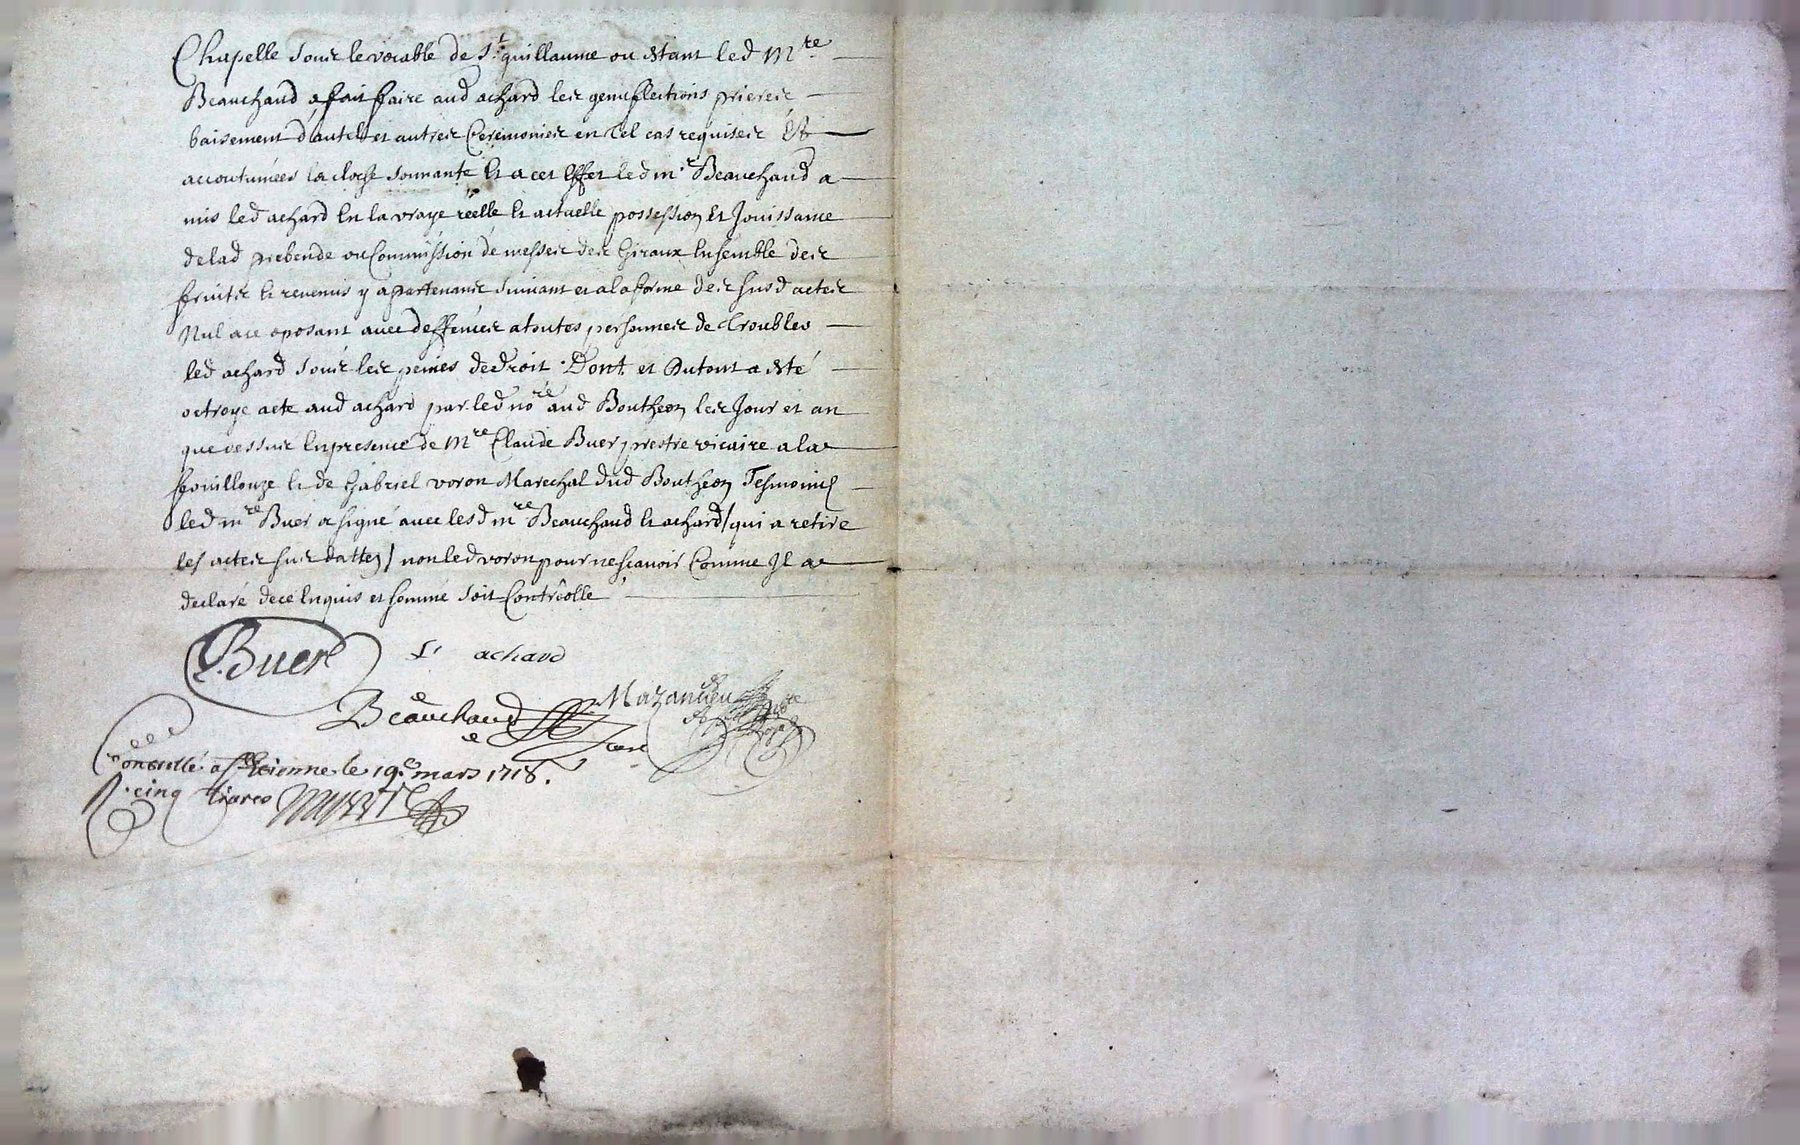 Chapelle sous le vocable de St guillaume ou estant led Mre
Beauchaud a fait faire aud achard les genuflections prieres
baisement d'autel et autres Ceremonies en Tel cas requises Et
accoutumées la cloche sonnante Et a cet Effet led mr Beauchaud a
mis led achard En la vraye réelle Et actuelle possession Et Jouissance
de lad prebende ou Commission de messes des Giraux Ensemble des
fruits Et revenus y apartenans suivant et a la forme des susd actes
Nul ace oposant avec deffences a toutes personnes de Troubler
led achard sous les peines de droit . Dont et Dutout a esté
octroye acte aud achard par led nore aud Boutheon les Jour et an
que dessus En presence de Mre Claude Buer prestre vicaire a la
fouillouze Et de Gabriel voron Marechal dud Boutheon Tesmoins
led mre Buer a signé avec lesd mre Beauchaud Et achard / qui a retire
les actes sus dattes / non led voron pour ne scavoir Comme Il a
declaré de ce Enquis et sommé soit Contrôollé
Buer achard
Beauchaud Mazandieu
Controllé a st Etienne le 19e mars 1718.
R. cinq livres